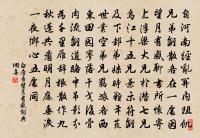 自河南經亂關內阻飢
兄弟離散各在一處因
望月有感聊書所懷寄
上浮梁大兄於潛七兄
烏江十五兄兼示符離
及下邽弟妹時難年荒
世業空弟兄羈旅各西
東田園寥落干戈後骨
肉流離道路中弔影分
為千里雁辭根散作九
秋蓬共看明月應垂淚
一夜鄉心五處同
白居易望月有感